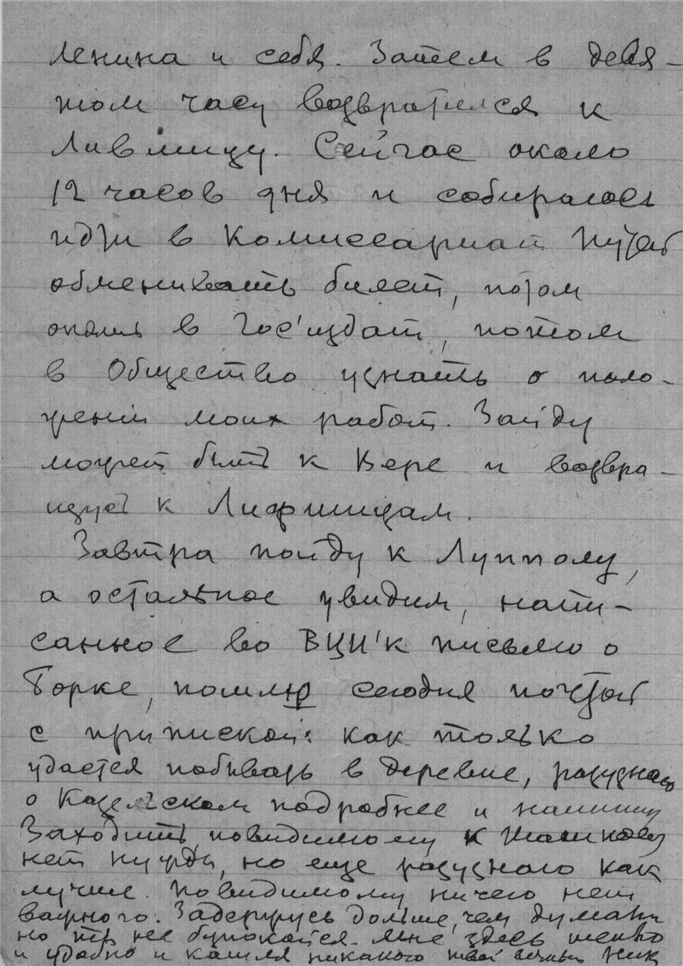 Ленина и себя. Затем в девя-
том часу возвратился к
Лившицу. Сейчас около
12 часов дня и собираюсь
идти в Комиссариат Путей
обменивать билет, потом
опять в Гос'издат, потом
в Общество узнать о поло-
жении моих работ. Зайду
может быть к Вере и возвра-
щусь к Лифшицам.
Завтра пойду к Лупполу,
а остальное увидим, напи-
санное во ВЦИ'к письмо о
Борке, пошлю сегодня почтой
с припиской: как только
удастся побывать в деревне, разузнаю
о Козельском подробнее и напишу
Заходить повидимому к
нет нужды, но еще разузнаю как
лучше. Повидимому ничего нет
важного. Задержусь дольше, чем думали
но ты не беспокойся. Мне здесь тепло
и удобно и кашля никакого твой